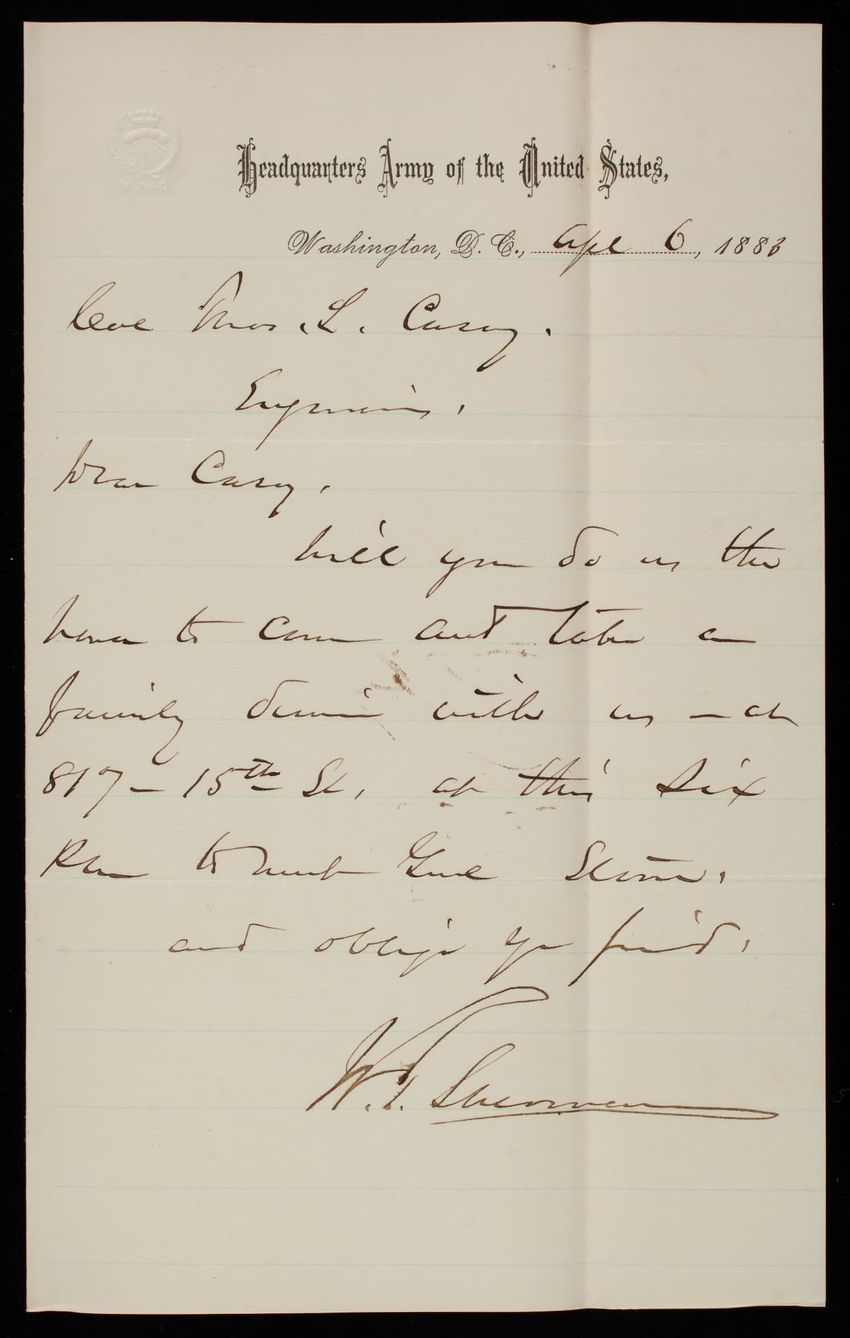 Headquarters Army of the United States,
Washington, D.C., Apl 6, 1883
Thos. L. Casey.
Engineers.
Dear Casey,
Will you do us the
honor to come and take a
family dinner with us - at
817 - 15th St, at six
PM to meet Genl Stone.
and oblige yr friend,
W.T. Sherman